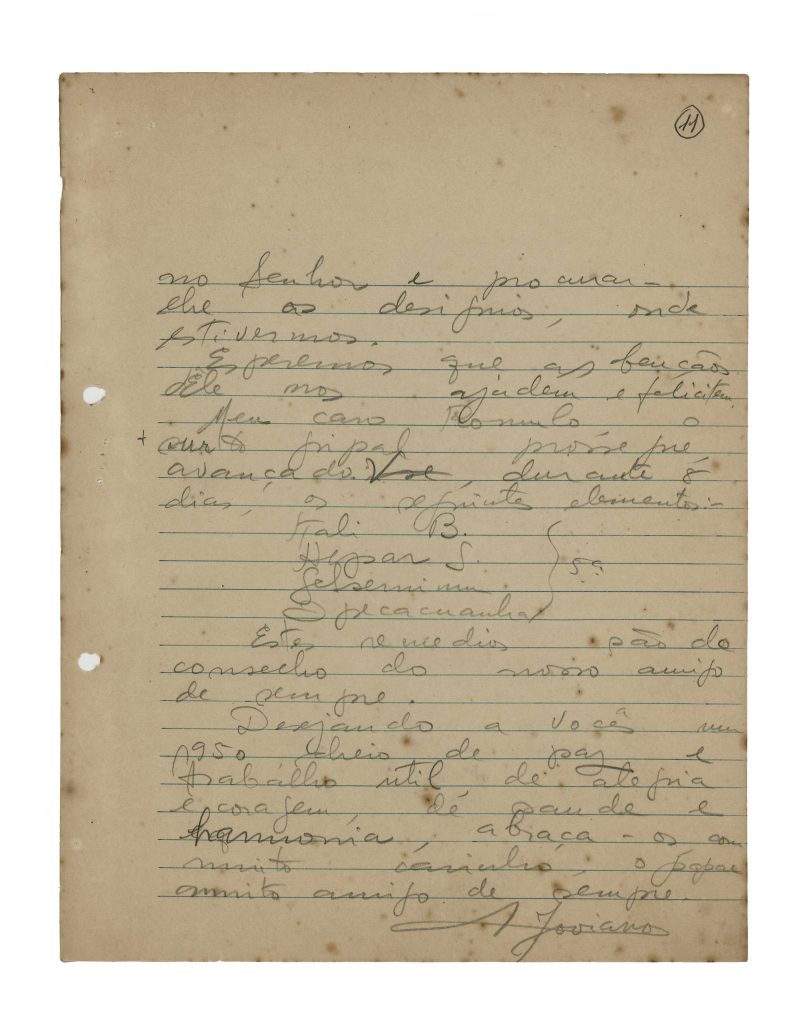 11
no Senhor e procurar-
lhe os designios, onde
estivermos.
Esperemos que as bençãos
dEle nos ajudem e felicitem.
Meu caro Romulo o
+ surto gripal prossegue
avançado. Use, durante 8
dias, os seguintes elementos:-
Kali B.
Hepar S.
Gelsemium
Ipecacuanha } 5ª
Estes remedios são do
conselho do nosso amigo
de sempre.
Desejando a vocês um
1950 cheio de paz e
trabalho util, de alegria
e coragem, de saude e
harmonia, abraça-os com
muito carinho, o papae
muito amigo de sempre.
A Joviano